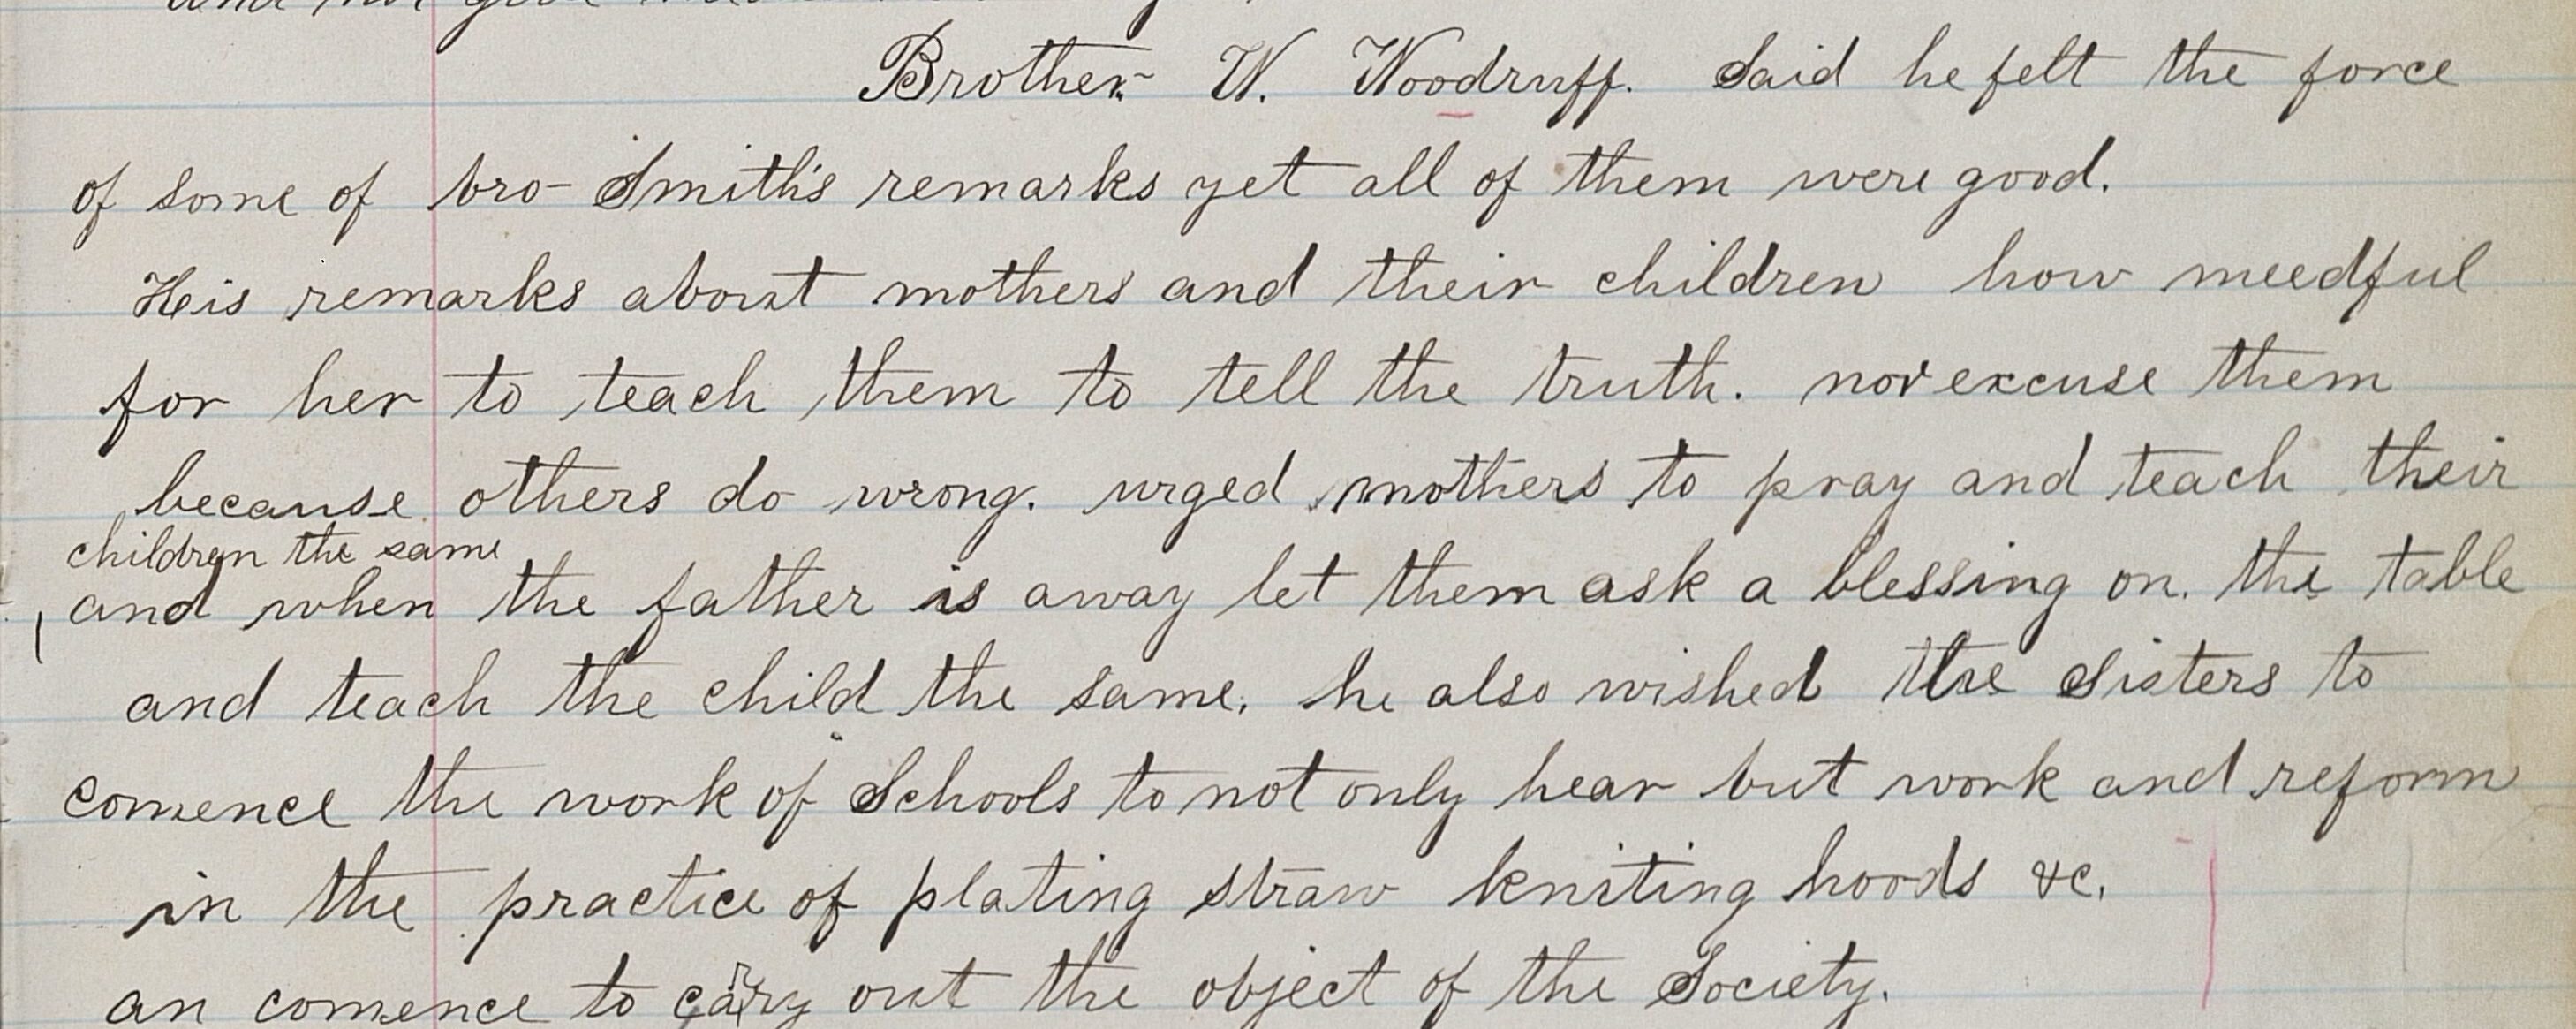 Brother W. Woodruff. Said he felt the force
of some of bro- Smith's remarks yet all of them were good.
His remarks about mothers and their children how needful
for her to teach them to tell the truth. nor excuse them
because others do wrong. urged mothers to pray and teach their
children the same
and when the father is away let them ask a blessing on. the table
and teach the child the same. he also wished the Sisters to
comence the work of Schools to not only hear but work and reform
in the practice of plating straw kniting hoods &c.
an comence to carry out the object of the Society.